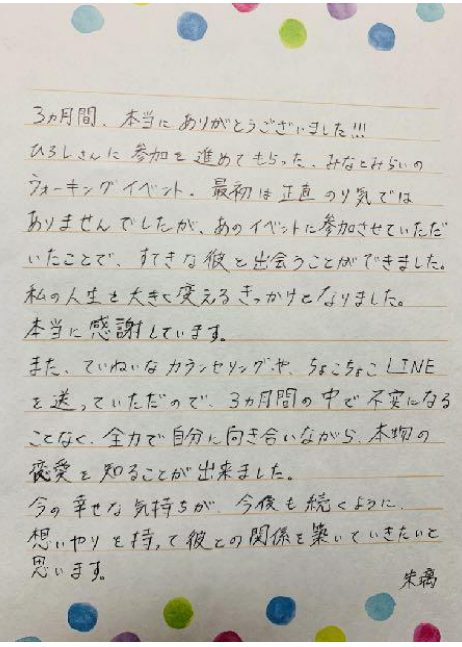 3ヵ月間、本当にありがとうございました!!!
ひろしさんに参加を進めてもらった、みなとみらいの
ウォーキングイベント。最初は正直のり気では
ありませんでしたが、あのイベントに参加させていただ
いたことで、すてきな彼と出会うことができました。
私の人生を大きく変えるきっかけとなりました。
本当に感謝しています。
また、ていねいなカウンセリングや、ちょこちょこLINE
を送っていただので、3ヵ月間の中で不安になる
ことなく、全力で自分に向き合いながら、本物の
恋愛を知ることが出来ました。
今の幸せな気持ちが、今後も続くように、
想いやりを持って彼との関係を築いていきたいと
思います。